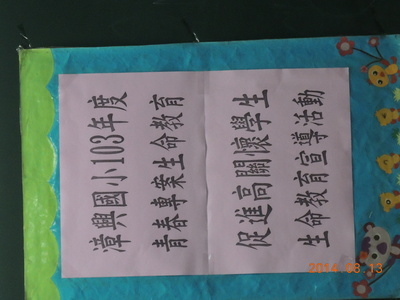 漳興國小103年度
青春專案生命教育
促進高關懷學生
生命教育宣導活動
2014 03 13